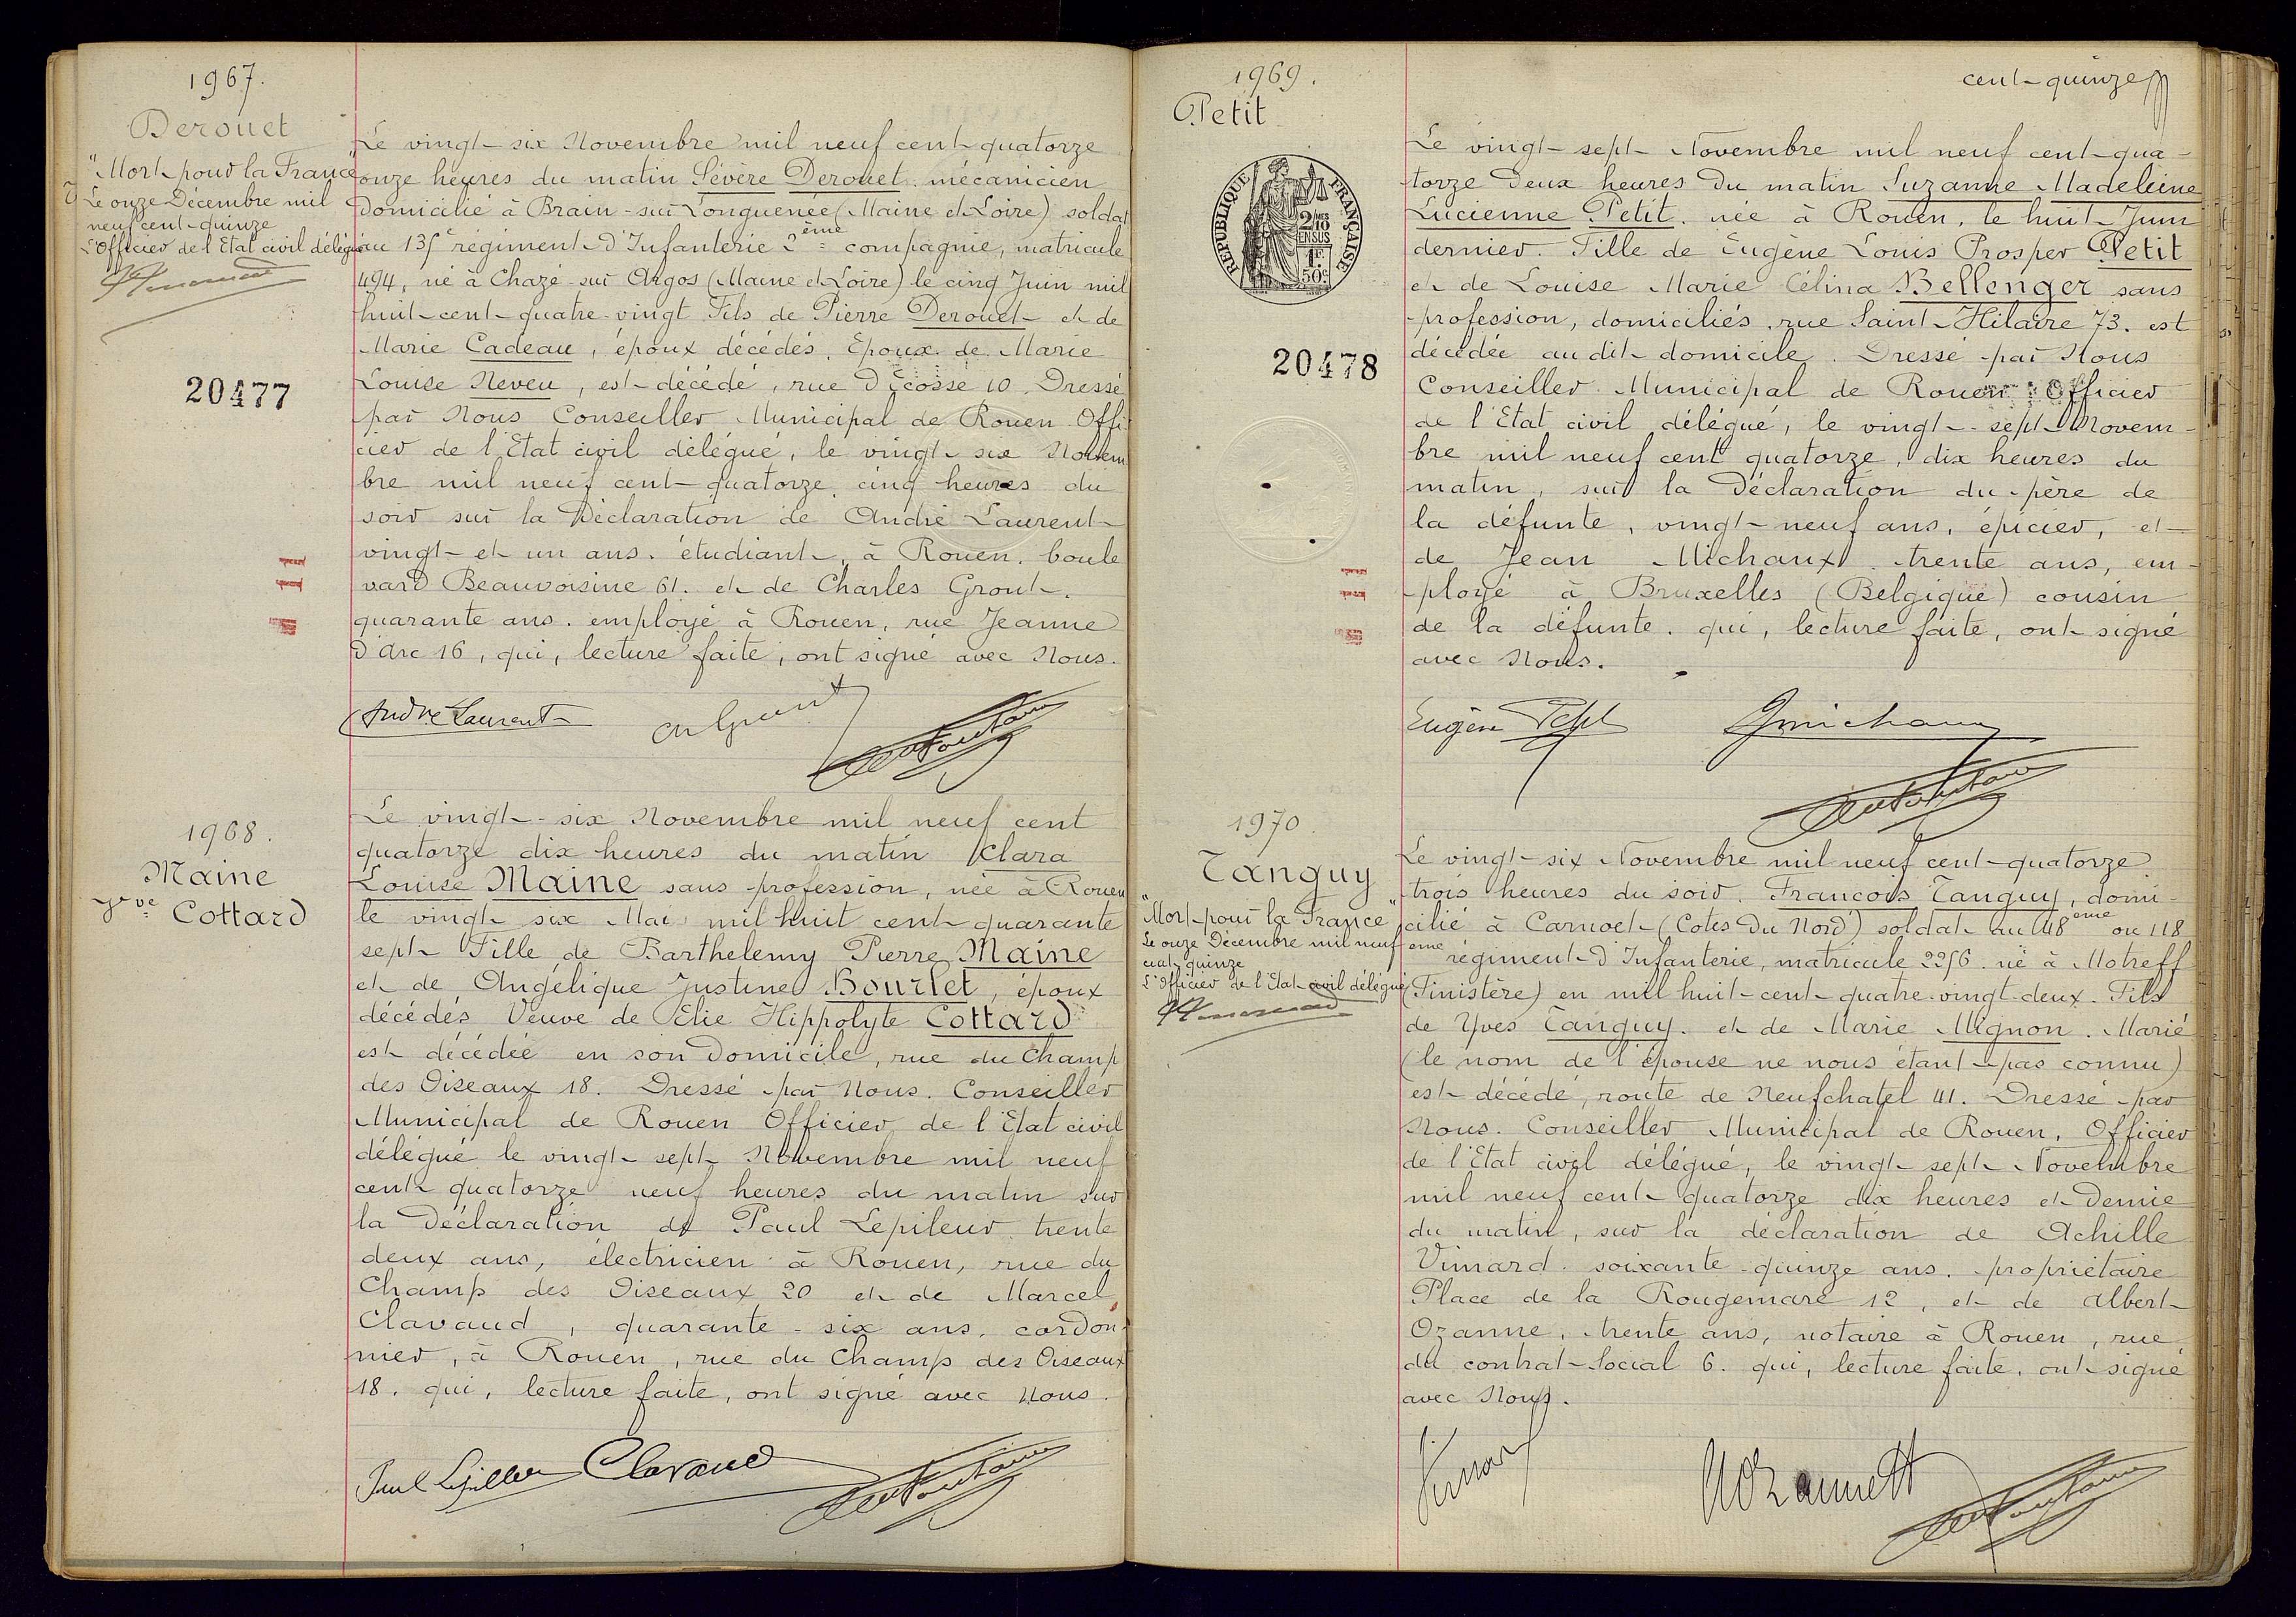 1967.
Derouet
"Mort pour la France"
Le onze Décembre mil
neuf cent quinze
L'Officier de l'Etat civil délégué
20477
Le vingt-six Novembre mil neuf cent quatorze
onze heures du matin Sévère Derouet mécanicien
domicilié à Brain-sur Longuenée (Maine et Loire) soldat
au 135e régiment d'Infanterie 2ème compagnie, matricule
494, né à Chazé-sur Argos (Maine et Loire) le cinq Juin mil
huit-cent-quatre-vingt Fils de Pierre Derouet et de
Marie Cadeau, époux décédés. Epoux de Marie
Louise Neveu, est décédé, rue d'Ecosse 10. Dressé
par Nous Conseiller Municipal de Rouen Offi-
cier de l'Etat civil délégué, le vingt-six Novem
bre mil neuf cent-quatorze, cinq heures du
soir sur la Déclaration de André Laurent
vingt-et un ans. étudiant, à Rouen, boule
vard Beauvoisine 61. et de Charles Grout.
quarante ans. employé à Rouen, rue Jeanne
d'Arc 16, qui, lecture faite, ont signé avec Nous.
André Laurent
1968.
Maine
Vve Cottard
Le vingt-six Novembre mil neuf cent
quatorze dix heures du matin Clara
Louise Maine sans profession, née à Rouen
le vingt six Mai mil huit cent quarante
sept Fille de Barthelemy Pierre Maine
et de Angélique Justine Bourlet, époux
décédés Veuve de Elie Hippolyte Cottard
est décédée en son domicile, rue du Champ
des Oiseaux 18. Dressé par Nous. Conseiller
Municipal de Rouen Officier de l'Etat civil
délégué le vingt-sept Novembre mil neuf
cent quatorze neuf heures du matin sur
la Déclaration de Paul Lepileur trente
deux ans, électricien à Rouen, rue du
Champ des Oiseaux 20 et de Marcel
Clavaud, quarante-six ans. cordon-
nier, à Rouen, rue du Champ des Oiseaux
18. qui, lecture faite, ont signé avec Nous.
Clavaud
1969.
Petit
RÉPUBLIQUE FRANÇAISE
2/10 MES
EN SUS
1F.
50c
20478
cent-quinze
Le vingt-sept Novembre mil neuf cent-qua-
torze Deux heures du matin Suzanne Madeleine
Lucienne Petit. née à Rouen, le huit Juin
dernier. Fille de Eugène Louis Prosper Petit
et de Louise Marie Célina Bellenger sans
profession, domiciliés, rue Saint-Hilaire 73. est
décédée au dit domicile. Dressé par Nous
Conseiller Municipal de Rouen Officier
de l'Etat civil délégué, le vingt-sept Novem-
bre mil neuf cent quatorze, dix heures du
matin, sur la Déclaration du père de
la défunte, vingt-neuf ans, épicier, et
de Jean Michaux trente ans, em-
ployé à Bruxelles (Belgique) cousin
de la défunte. qui, lecture faite, ont signé
avec Nous.
Eugène Petit
1970
Tanguy
"Mort pour la France"
Le onze Décembre mil neuf
cent quinze
L'Officier de l'Etat civil délégué
Le vingt-six Novembre mil neuf cent-quatorze
trois heures du soir. Francois Tanguy, domi-
cilié à Carnoet (Cotes du Nord) soldat au 48ème ou 118
ème régiment d'Infanterie, matricule 2256. né à Motreff
(Finistère) en mil huit-cent-quatre-vingt-deux. Fils
de Yves Tanguy. et de Marie Mignon. Marié
(le nom de l'épouse ne nous étant pas connu)
est décédé, route de Neufchatel 41. Dressé par
Nous. Conseiller Municipal de Rouen, Officier
de l'Etat civil délégué, le vingt-sept Novembre
mil neuf cent quatorze dix heures et Demie
du matin, sur la déclaration de Achille
Vimard. soixante-quinze ans. propriétaire
Place de la Rougemare 12, et de Albert
Ozanne, trente ans, notaire à Rouen, rue
du contrat-Social 6. qui, lecture faite, ont signé
avec Nous.